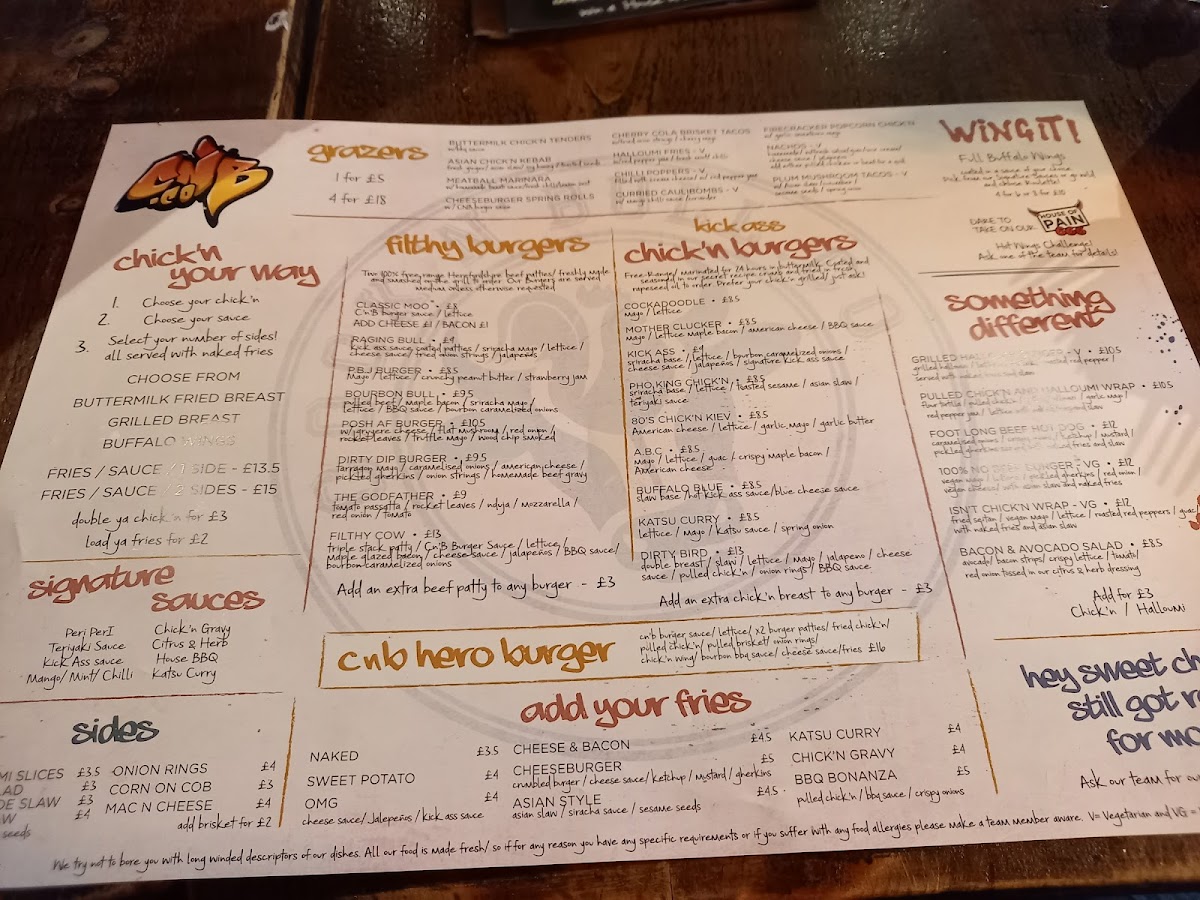 CnB
.CO
grazers
1 for £5
4 for £18
BUTTERMILK CHICK'N TENDERS
ASIAN CHICK'N KEBAB
MEATBALL MARINARA
CHEESEBURGER SPRING ROLLS
w/ CnB burger sauce
CHERRY COLA BRISKET TACOS
HALLOUMI FRIES - V
CHILLI POPPERS - V
CURRIED CAULIBOMBS - V
FIRECRACKER POPCORN CHICK'N
NACHOS - V
PLUM MUSHROOM TACOS - V
WING IT!
Full Buffalo Wings
coated in a sauce of your choice.
4 for 6 or 8 for
DARE TO
TAKE ON OUR
HOUSE OF
PAIN
Hot Wings Challenge!
Ask one of the team for details!
chick'n
your way
1. Choose your chick'n
2. Choose your sauce
3. Select your number of sides!
all served with naked fries
CHOOSE FROM
BUTTERMILK FRIED BREAST
GRILLED BREAST
BUFFALO WINGS
FRIES / SAUCE / 1 SIDE - £13.5
FRIES / SAUCE / 2 SIDES - £15
double ya chick'n for £3
load ya fries for £2
signature
sauces
Peri Peri
Teriyaki Sauce
Kick Ass sauce
Mango/ Mint/ Chilli
Chick'n Gravy
Citrus & Herb
House BBQ
Katsu Curry
filthy burgers
Two 100% free range Herefordshire beef patties/ freshly made
and smashed on the grill to order. Our Burgers are served
medium unless otherwise requested
CLASSIC MOO • £8
C'n'B burger sauce / lettuce
ADD CHEESE £1 / BACON £1
RAGING BULL • £9
kick ass sauce coated patties / sriracha mayo / lettuce /
cheese sauce/ fried onion strings / jalapeños
P.B.J BURGER • £8.5
Mayo / lettuce / crunchy peanut butter / strawberry jam
BOURBON BULL • £9.5
pulled beef/ maple bacon / sriracha mayo /
lettuce / BBQ sauce / bourbon caramelized onions
POSH AF BURGER • £10.5
w/ gruyere cheese / flat mushroom / red onion /
rocket leaves / truffle mayo / wood chip smoked
DIRTY DIP BURGER • £9.5
tarragon mayo / caramelised onions / american cheese /
pickled gherkins / onion strings / homemade beef gravy
THE GODFATHER • £9
tomato passatta / rocket leaves / nduja / mozzarella /
red onion / tomato
FILTHY COW • £13
triple stack patty / Cn'B Burger Sauce / lettuce/
Maple glazed bacon / cheese sauce / jalapeños / BBQ sauce/
bourbon caramelized onions
Add an extra beef patty to any burger - £3
kick ass
chick'n burgers
Free-Range/ Marinated for 24 hours in buttermilk. Coated and
seasoned in our secret recipe crumb and fried in fresh
rapeseed oil to order. Prefer your chick'n grilled/ just ask!
COCKADOODLE • £8.5
mayo / lettuce
MOTHER CLUCKER • £8.5
Mayo / lettuce maple bacon / american cheese / BBQ sauce
KICK ASS • £9
sriracha base / lettuce / bourbon caramelized onions /
cheese sauce / jalapeños / signature kick ass sauce
PHO KING CHICK'N • £8.5
sriracha base / lettuce / toasted sesame / asian slaw /
teriyaki sauce
80'S CHICK'N KIEV • £8.5
American cheese / lettuce / garlic mayo / garlic butter
A.B.C • £8.5
mayo / lettuce / guac / crispy maple bacon /
American cheese
BUFFALO BLUE • £8.5
slaw base / hot kick ass sauce/blue cheese sauce
KATSU CURRY • £8.5
lettuce / Mayo / Katsu sauce / spring onion
DIRTY BIRD • £13
double breast / slaw / lettuce / mayo / jalapeno / cheese
sauce / pulled chick'n / onion rings / BBQ sauce
Add an extra chick'n breast to any burger - £3
something
different
GRILLED HALLOUMI BURGER - V • £10.5
PULLED CHICK'N AND HALLOUMI WRAP • £10.5
FOOT LONG BEEF HOT DOG • £12
100% NO BEEF BURGER - VG • £12
vegan cheese/ with asian slaw and naked fries
ISN'T CHICK'N WRAP - VG • £12
fried seitan / vegan mayo / lettuce / roasted red peppers / guac/
with naked fries and asian slaw
BACON & AVOCADO SALAD • £8.5
avocado/ bacon strips/ crispy lettuce / tomato/
red onion tossed in our citrus & herb dressing
Add for £3
Chick'n / Halloumi
cnb hero burger
cn'b burger sauce/ lettuce/ x2 burger patties/ fried chick'n/
pulled chick'n/ pulled brisket/ onion rings/
chick'n wing/ bourbon bbq sauce/ cheese sauce/fries £16
sides
MI SLICES £3.5
LAD £3
DE SLAW £3
W £4
seeds
ONION RINGS £4
CORN ON COB £3
MAC N CHEESE £4
add brisket for £2
add your fries
NAKED £3.5
SWEET POTATO £4
OMG £4
cheese sauce/ Jalepeños / kick ass sauce
CHEESE & BACON £4.5
CHEESEBURGER £5
crumbled burger / cheese sauce/ ketchup / mustard / gherkins
ASIAN STYLE £4.5
asian slaw / siracha sauce / sesame seeds
KATSU CURRY £4
CHICK'N GRAVY £4
BBQ BONANZA £5
pulled chick'n / bbq sauce / crispy onions
hey sweet ch
still got r
for mo
Ask our team for ou
We try not to bore you with long winded descriptors of our dishes. All our food is made fresh/ so if for any reason you have any specific requirements or if you suffer with any food allergies please make a team member aware. V= Vegetarian and VG =